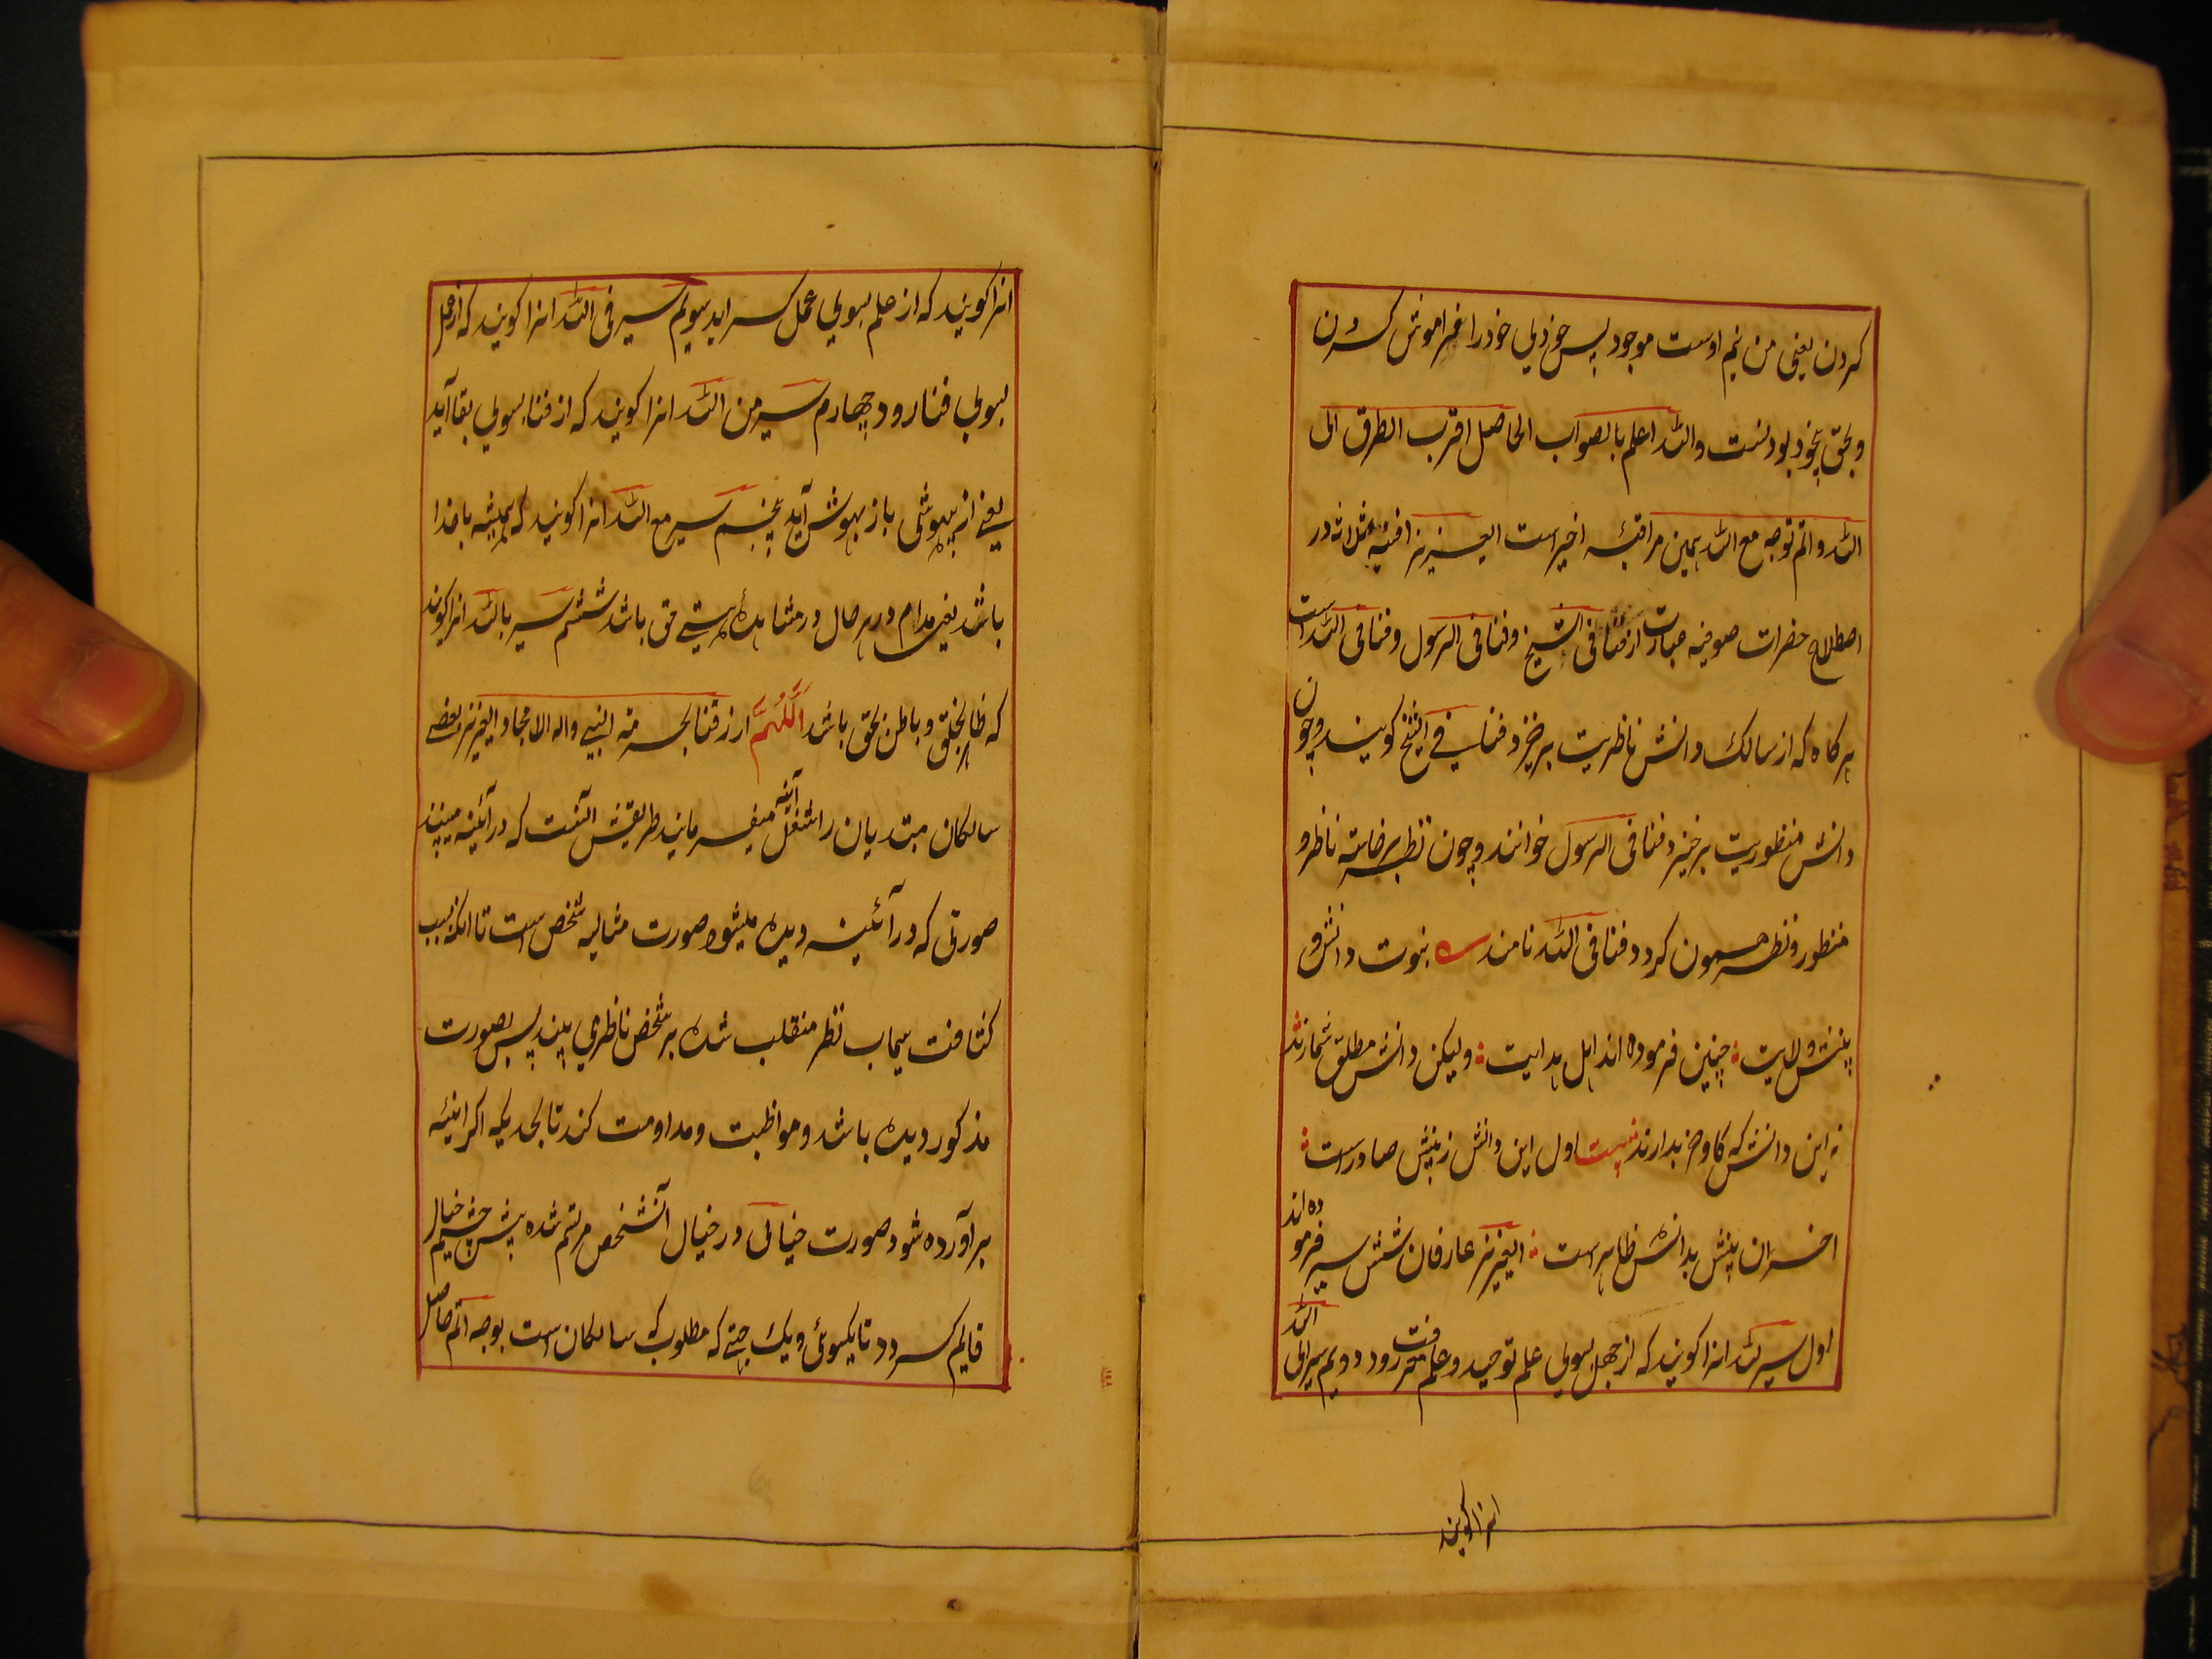 کردن یعنی من نیم اوست موجود پس خودی خود را فراموش کردن
و بحق بیخود بودنست والله اعلم بالصواب الحاصل اقرب الطرق الی
الله و اتم توجه مع الله همین مراقبه اخیر است العزیز افنیه ثلاثه در
اصطلاح حضرات صوفیه عبارت از فنا فی الشیخ و فنا فی الرسول و فنا فی الله است
هر کاه که از سالک دانش ناظریت برخیزد فنا فی الشیخ کویند و چون
دانش منظوریت برخیزد فنا فی الرسول خوانند و چون نظر برخاسته ناظر و
منظور و نظر همون کردد فنا فی الله نامند نبوت دانش و
بینش ولایت چنین فرموده اند اهل هدایت ولیکن دانش مطلق شمارند
نه این دانش که کاو و خر بدارند بیت اول این دانش ز بینش صادر است
اخر ان بینش بدانش ظاهر است العزیز عارفان شش سیر فرموده اند
اول سیر لله انرا کویند که از جهل بسوی علم توحید و علم معرفت رود دویم سیر الی الله
انرا کویند
انرا کویند که از علم بسوی عمل سراید سویم سیر فی الله انرا کویند که از عمل
بسوی فنا رود چهارم سیر من الله انرا کویند که از فنا بسوی بقا آید
یعنے از بیهوشی باز بهوش آید پنجم سیر مع الله انرا کویند که همیشه با خدا
باشد یعنی مدام در هر حال در مشاهدهٔ هستے حق باشد ششم سیر بالله انرا کویند
که ظاهر بخلق و باطن بحق باشد اَللّٰهُمَّ ارزقنا بحرمة النبے واله الامجاد العزیز بعضے
سالکان مبتدیان را شغل آئنه میفرمایند طریقش آنست که در آئینه میبیند
صورتی که در آئینه دیده میشود صورت مثالیه شخص است تا انکه بسبب
کثافت سیماب نظر منقلب شده بر شخص ناظری بیند پس بصورت
مذکور دیده باشد و مواظبت و مداومت کند تا بحدیکه اکر ائینه
برآورده شود صورت خیالی در خیال آنشخص مرتسم شده پیش چشم خیال
قایم کردد تا یکسوئی و یک جهتے که مطلوب که سالکان است بوجه اتم حاصل